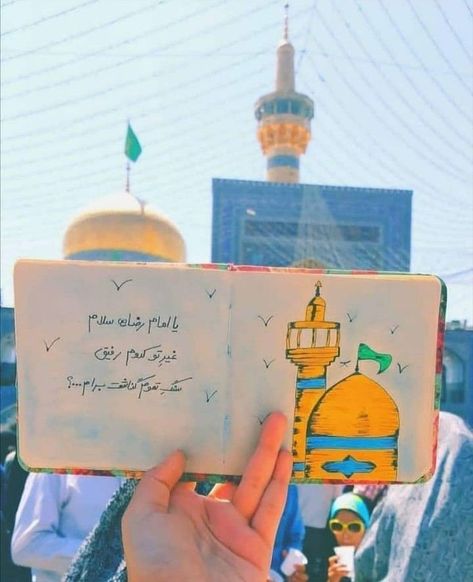 یا امام رضای سلام
غیرِ تو کدوم رفیق
سنگِ تموم گذاشت برام...؟